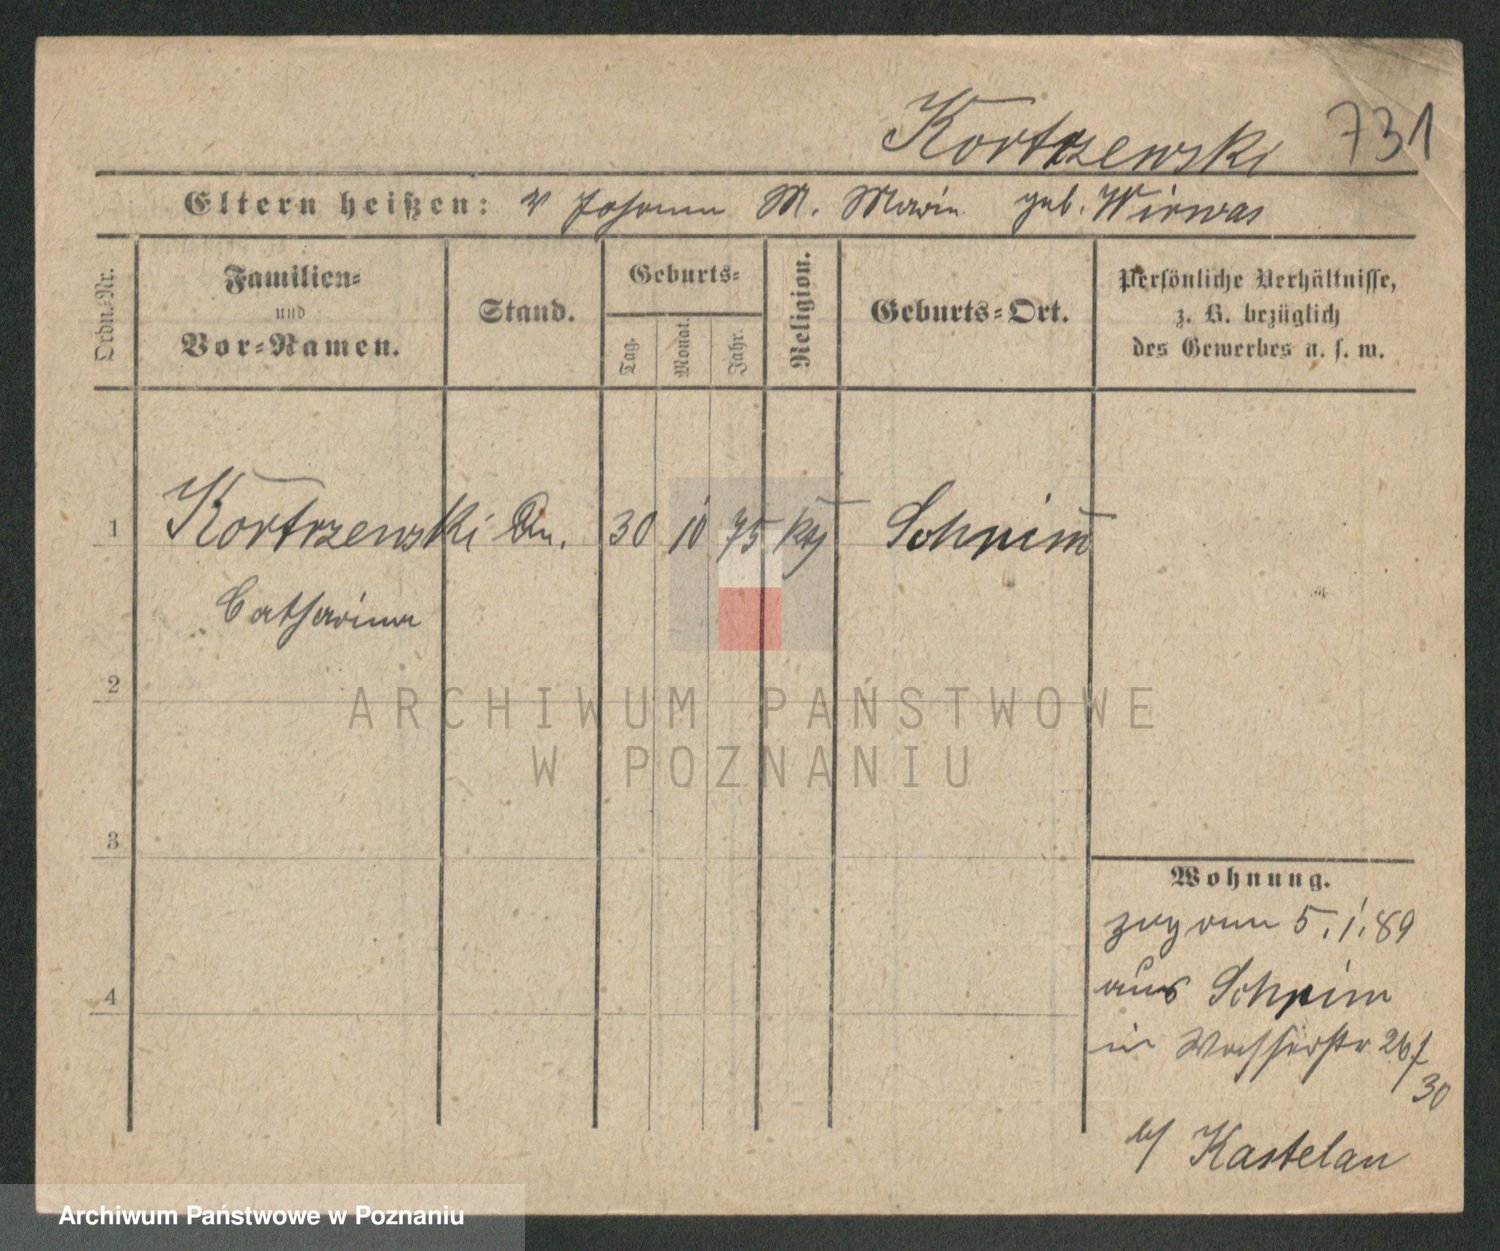 Kortrzewski 731
Eltern heißen: V Johann M. Marie geb. Wirwas
Ordn.-Nr.
Familien-
und
Vor-Namen.
Stand.
Geburts-
Tag.
Monat.
Jahr.
Religion.
Geburts-Ort.
Persönliche Verhältnisse,
z. B. bezüglich
des Gewerbes u. s. w.
1 Kortrzewski 30 10 75 Schrimm
Catharina
2
ARCHIWUM PAŃSTWOWE
W POZNANIU
3
4
Wohnung.
zog am 5.1.89
aus Schrimm
in Wasserstr 26/
30
b/ Kastelan
Archiwum Państwowe w Poznaniu